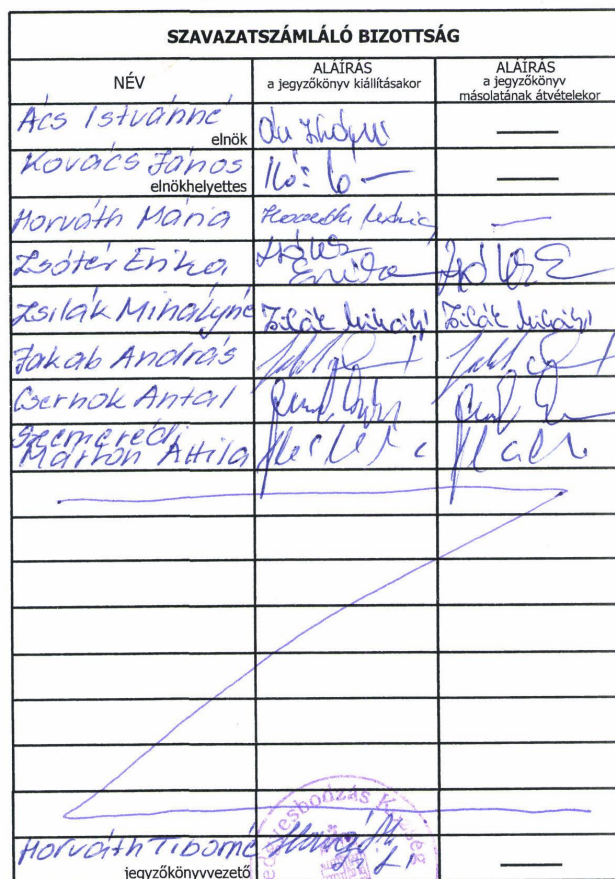 SZAVAZATSZÁMLÁLÓ BIZOTTSÁG
NÉV
ALÁÍRÁS
a jegyzőkönyv kiállításakor
ALÁÍRÁS
a jegyzőkönyv
másolatának átvételekor
Ács Istvánné
elnök
Kovács János
elnökhelyettes
Horváth Mária
Horváth Mária
Zsótér Erika
Zsótér
Erika
Zsilák Mihályné
Zsilák Mihályné
Zsilák Mihályné
Jakab András
Csernok Antal
Szemerédi
Márton Attila
Horváth Tiborné
jegyzőkönyvvezető